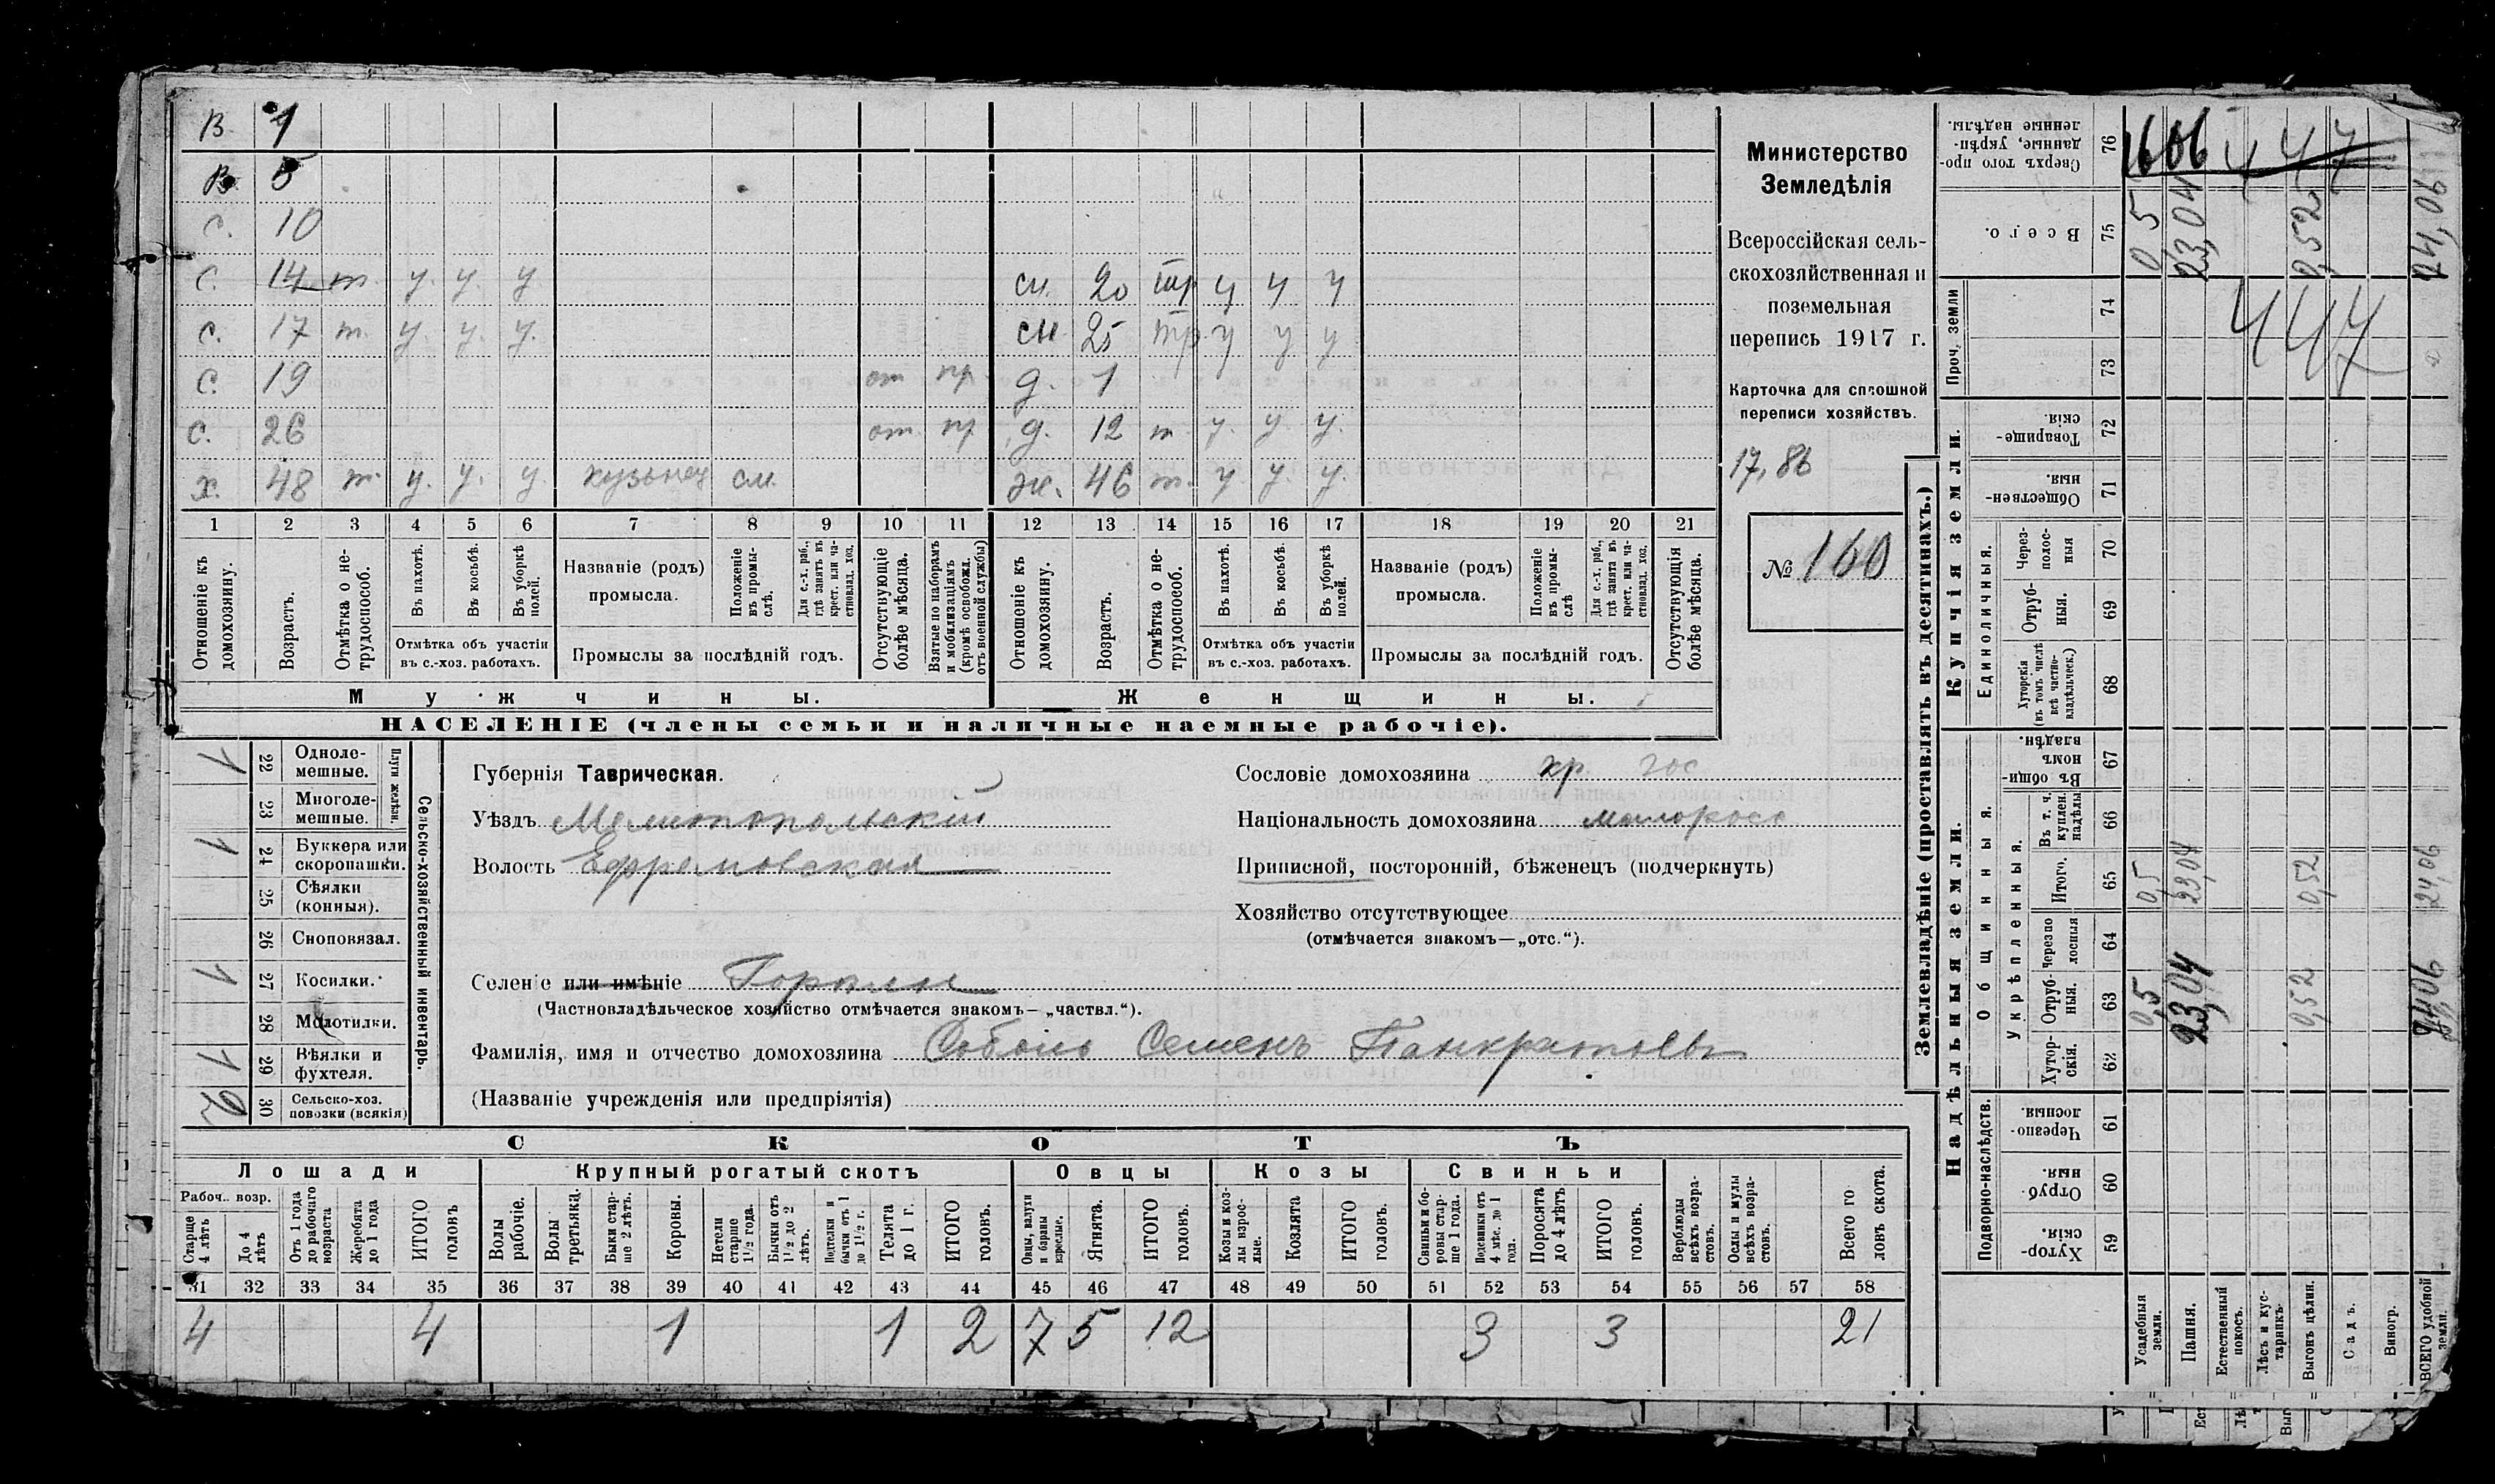 В 1
В 5
с. 10
с. 14 т. у. у. у сн. 20 тр у у у
с. 17 т. у. у. у. сн 25 тр у у у
с. 19 от пр. д. 1
с. 26 от. пр д. 12 т у. у. у.
х. 48 т. у. у. у кузнец см. ж. 46 т. у. у. у.
1 2 3 4 5 6 7 8 9 10 11 12 13 14 15 16 17 18 19 20 21
Отношеніе къ домохозяину.
Возрастъ.
Отмѣтка о не-трудоспособ.
Въ пахотѣ.
Въ косьбѣ.
Въ уборкѣ полей.
Отмѣтка объ участіи въ с.-хоз. работахъ.
Названіе (родъ) промысла.
Положеніе въ промы-слѣ.
Для с.-х. раб., гдѣ занятъ въ крест. или ча-стновлад. хоз.
Промыслы за послѣдній годъ.
Отсутствующіе болѣе мѣсяца.
Взятые по наборамъ и мобилизаціямъ (кромѣ освобожд. отъ военной службы)
Отношеніе къ домохозяину.
Возрастъ.
Отмѣтка о не-трудоспособ.
Въ пахотѣ.
Въ косьбѣ.
Въ уборкѣ полей.
Отмѣтка объ участіи въ с.-хоз. работахъ.
Названіе (родъ) промысла.
Положеніе въ промы-слѣ
Для с.-х. раб., гдѣ занята въ крест. или ча-стновлад. хоз.
Промыслы за послѣдній годъ.
Отсутствующія болѣе мѣсяца.
Мужчины. Женщины.
НАСЕЛЕНІЕ (члены семьи и наличные наемные рабочіе).
Министерство
Земледѣлія
Всероссійская сель-
скохозяйственная и
поземельная
перепись 1917 г.
Карточка для сплошной
переписи хозяйствъ.
17,86
№ 160
1 22 Одноле-мешные.
23 Многоле-мешные.
Плуги желѣзн.
1 24 Буккера или скоропашки.
25 Сѣялки (конныя).
26 Сноповязал.
1 27 Косилки.
28 Молотилки.
1 29 Вѣялки и фухтеля.
2 30 Сельско-хоз. повозки (всякія)
Сельско-хозяйственный инвентарь.
Губернія Таврическая.
Уѣздъ Мелитопольскій
Волость Ефремовская
Селеніе или имѣніе Горѣлы
(Частновладѣльческое хозяйство отмѣчается знакомъ— „частвл.“).
Фамилія, имя и отчество домохозяина Соболь Семенъ Панкратьевъ
(Названіе учрежденія или предпріятія)
Сословіе домохозяина кр. гос
Національность домохозяина малоросс
Приписной, посторонній, бѣженецъ (подчеркнуть)
Хозяйство отсутствующее
(отмѣчается знакомъ—„отс.“).
СКОТЪ
Лошади Крупный рогатый скотъ Овцы Козы Свиньи
Рабоч. возр.
Старше 4 лѣтъ
До 4 лѣтъ
Отъ 1 года до рабочаго возраста
Жеребята до 1 года
ИТОГО головъ
Волы рабочіе.
Волы третьяки.
Быки стар-ше 2 лѣтъ.
Коровы.
Нетели старше 1½ года.
Бычки отъ 1½ до 2 лѣтъ.
Подтелки и бычки отъ 1 до 1½ г.
Телята до 1 г.
ИТОГО головъ.
Овцы, валухи и бараны взрослые.
Ягнята.
ИТОГО головъ.
Козы и коз-лы взрос-лые.
Козлята
ИТОГО головъ.
Свиньи и бо-ровы стар-ше 1 года.
Подсвинки отъ 4 мѣс. до 1 года.
Поросята до 4 лѣтъ
ИТОГО головъ.
Верблюды всѣхъ возра-стовъ.
Ослы и мулы всѣхъ возра-стовъ.
Всего го ловъ скота.
31 32 33 34 35 36 37 38 39 40 41 42 43 44 45 46 47 48 49 50 51 52 53 54 55 56 57 58
4 4 1 1 2 7 5 12 3 3 21
Землевладѣніе (проставлять въ десятинахъ.)
Купчія земли.
Надѣльныя земли.
Сверхъ того про-данные, укрѣп-ленные надѣлы. 76 1606 447
Всего. 75 0 5 23,04 0,52 24,06
Проч. земли 74 73 447
Товарище-скія 72
Обществен-ныя. 71
Единоличныя.
Через-полос-ныя 70
Отруб-ныя. 69
Хуторскія (въ томъ числѣ всѣ частно-владѣльческ.) 68
Общинныя.
Въ общи-номъ владѣн. 67
Укрѣпленныя.
Въ т. ч. куплен. надѣлы 66
Итого. 65 0,5 23,04 0,52 24,06
Черезпо лосныя 64
Отруб-ныя. 63 0,5 23,04 0,52 24,06
Хутор-скія. 62
Подворно-наслѣдств.
Черезпо-лосныя. 61
Отруб-ныя. 60
Хутор-скія. 59
Усадебныя земли.
Пашня.
Естественный покосъ.
Лѣсъ и кус-тарникъ.
Выгонъ цѣлин.
Садъ.
Виногр.
ВСЕГО удобной земли.